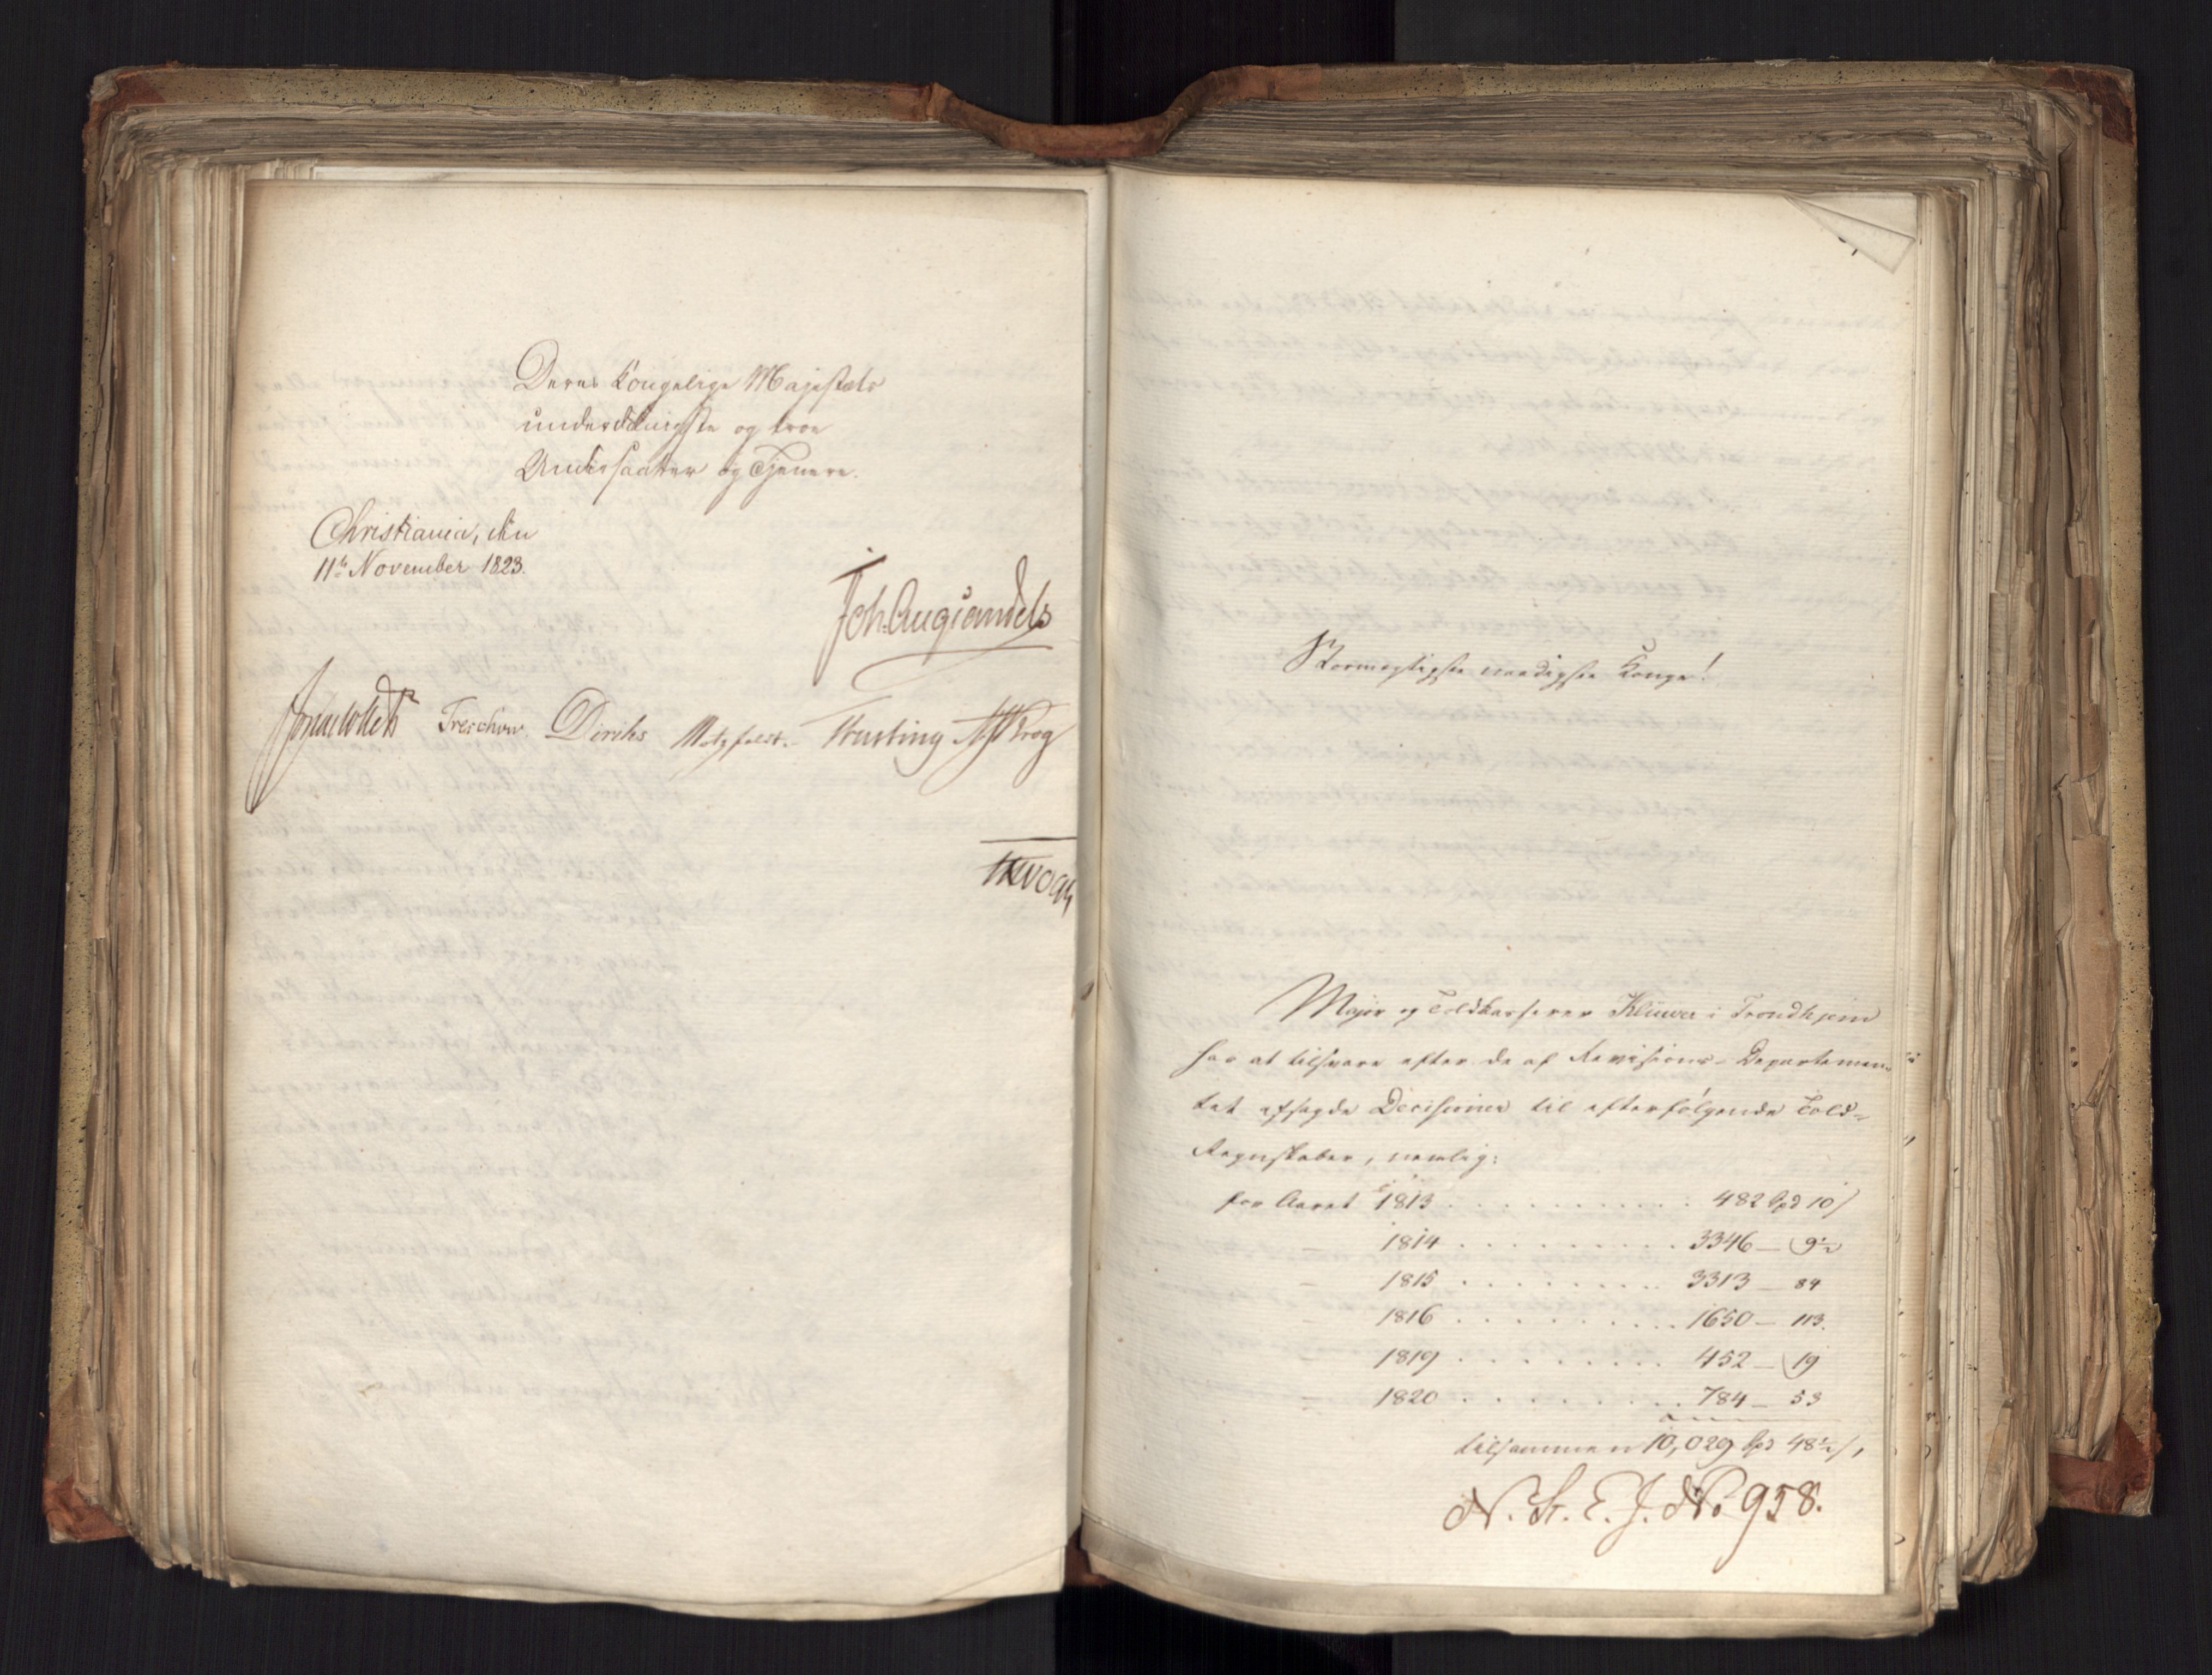 Deres Kongelige Majestæts
underdanigste og troe
Undersaatter og Tjenere.
Christiania, den
11te November 1823.
Joh. Aug. Sandels
Treschow Diriks Motzfeldt. Fasting Krog
Vogt
Stormægtigste naadigste Konge!
Major og Toldkasserer Klüwer i Trondhjem
har at tilsvare efter de af Revisions-Departemen-
tet afsagde Decisioner til efterfølgende Told-
Regnskaber, nemlig:
for Aaret 1813 . . . . . . . . . . 482 Spd 10 s
— 1814 . . . . . . . . . 3346 — 9½
— 1815 . . . . . . . . . 3313 — 84
— 1816 . . . . . . . . . 1650 — 113.
— 1819 . . . . . . . . . 452 — 19
— 1820 . . . . . . . . . 784 — 53
tilsammen 10,029 Spd 48½ s,
N. St. E. J. No 958.